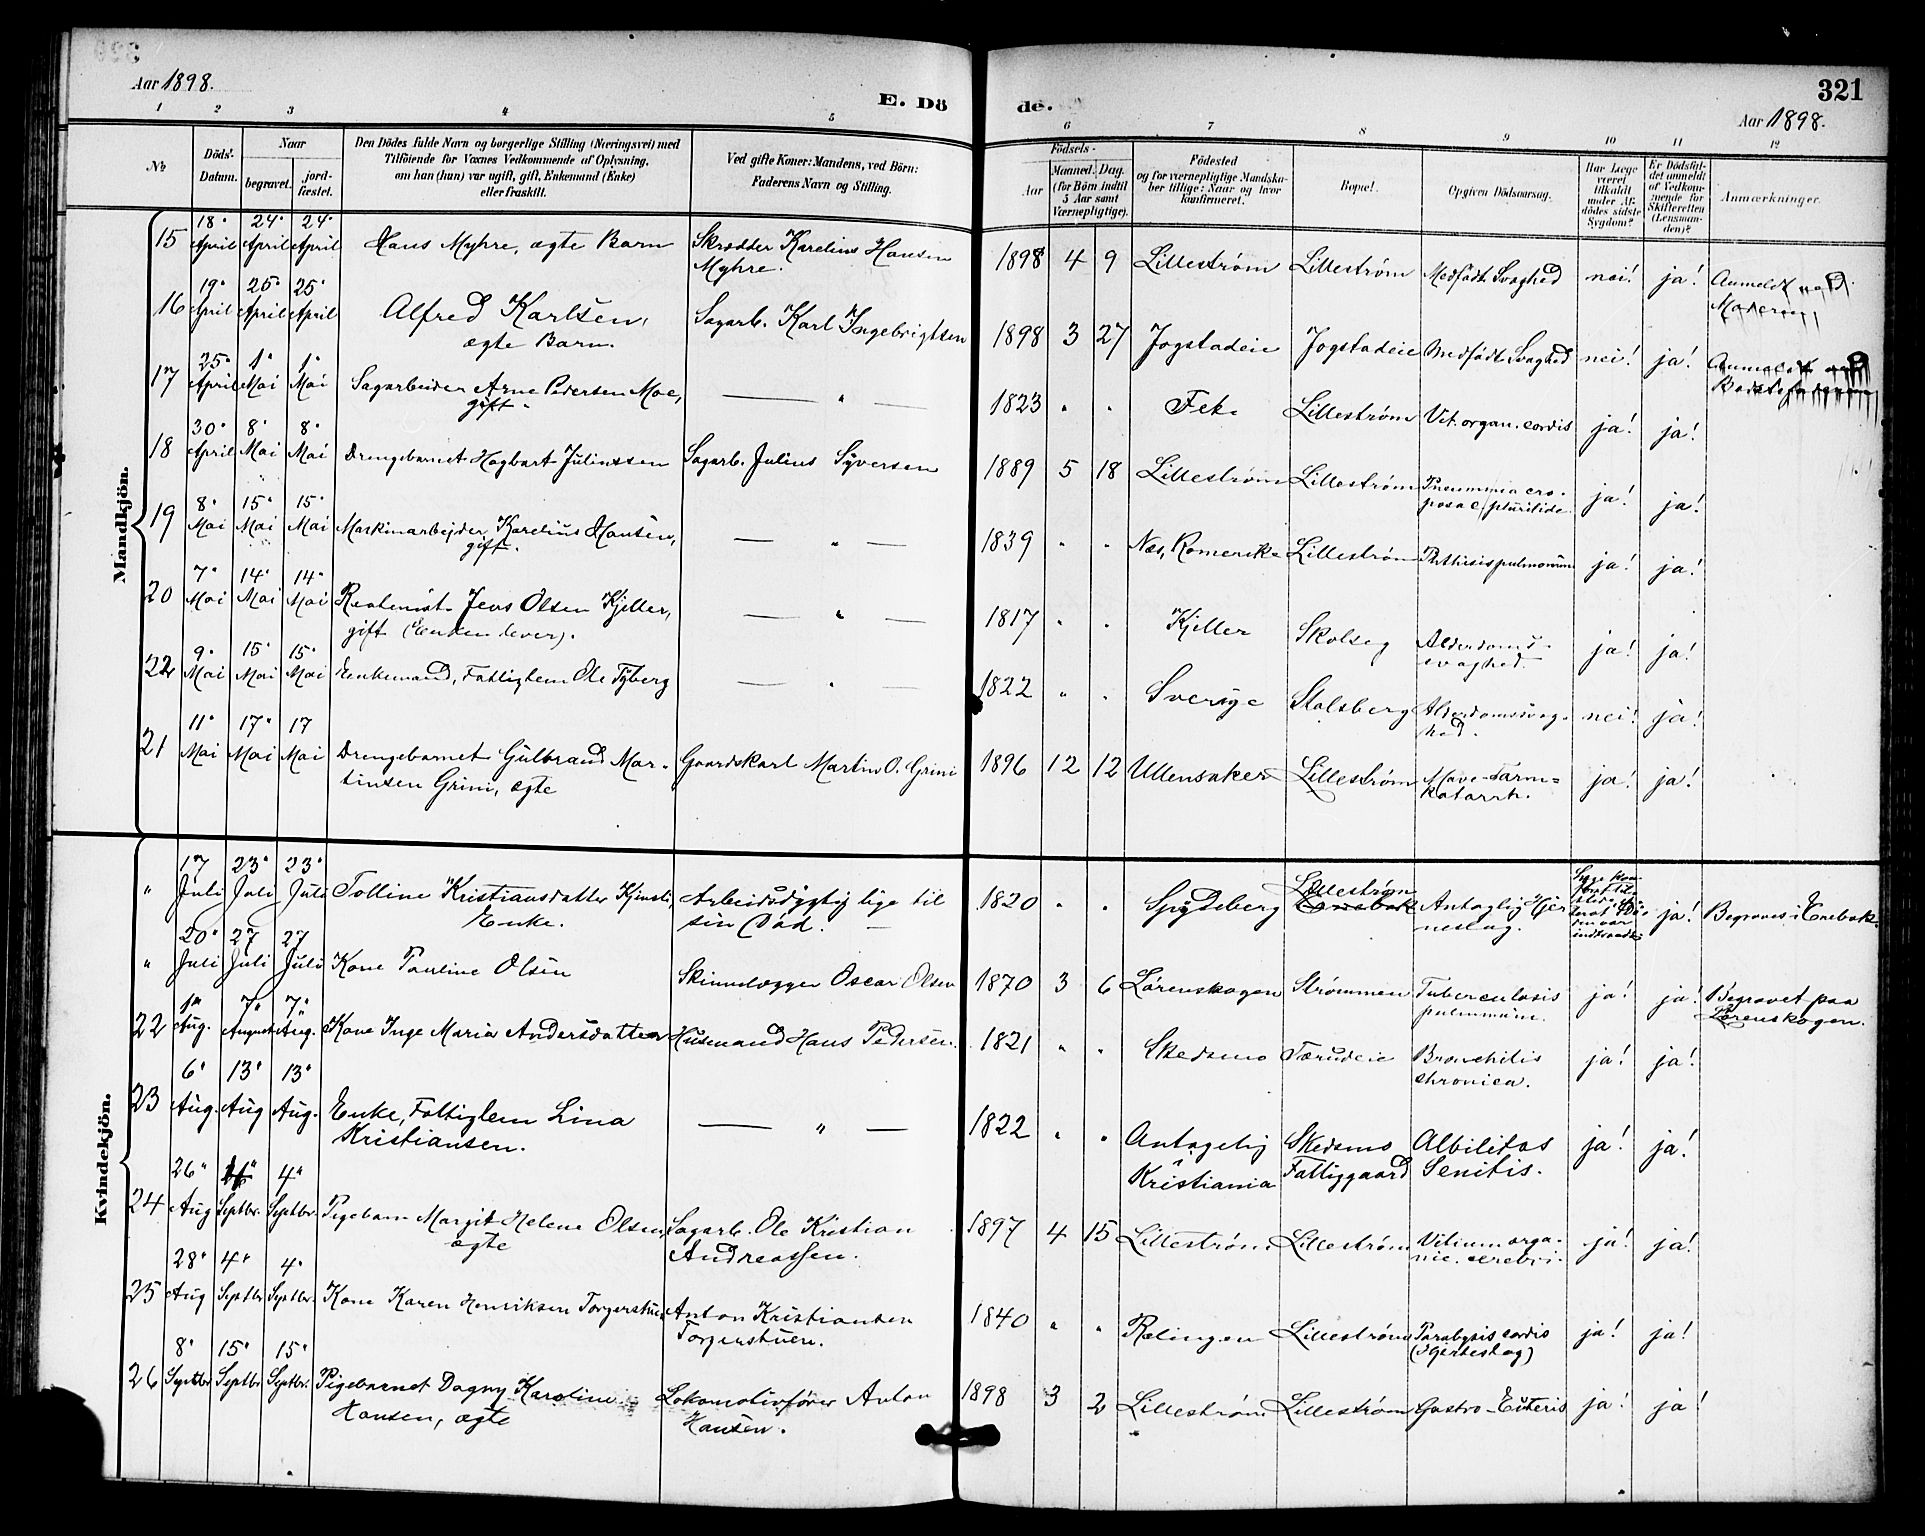 Aar 1898.
E. Dö
de.
321
Aar 1898.
1 2 3 4 5 6 7 8 9 10 11 12
No.
Döds-Datum.
Naar
begravet.
jordfæstet.
Den Dödes fulde Navn og borgerlige Stilling (Næringsvei) med
Tilföiende for Voxnes Vedkommende af Oplysning,
om han (hun) var ugift, gift, Enkemand (Enke)
eller fraskilt.
Ved gifte Koner: Mandens, ved Börn:
Faderens Navn og Stilling.
Födsels-
Aar
Maaned. Dag.
(for Börn indtil
5 Aar samt
Værnepligtige).
Födested
og for værnepligtige Mandskaber tillige: Naar og hvor
konfirmeret.
Bopæl.
Opgiven Dödsaarsag.
Har Læge
været
tilkaldt
under Afdödes sidste
Sygdom?
Er Dödsfaldet anmeldt
af Vedkommende for
Skifteretten
(Lensmanden)?
Anmærkninger.
Mandkjön.
15 18. April 24. April 24. April Hans Myhre, ægte Barn Skrædder Karelius Hansen Myhre. 1898 4 9 Lillestrøm Lillestrøm Medfødt Svaghed nei! ja! Anmeldt ved Moderen
16 19. April 25. April 25. April Alfred Karlsen, ægte Barn. Sagarb. Karl Ingebrigtsen 1898 3 27 Jogstadeie Jogstadeie Medfødt Svaghed nei! ja! Anmeldt ved
17 25. April 1. Mai 1. Mai Sagarbeider Arne Pedersen Moe, gift. — " — 1823 " " Fet. Lillestrøm Vit. organ. cordis ja! ja!
18 30. April 8. Mai 8. Mai Drengebarnet Hagbart Juliussen Sagarb. Julius Syversen 1889 5 18 Lillestrøm Lillestrøm ja! ja!
19 8. Mai 15. Mai 15. Mai Maskinarbejder Karelius Hansen, gift. — " — 1839 " " Næs, Romerike Lillestrøm Phthisis pulmonum ja! ja!
20 7. Mai 14. Mai 14. Mai Jens Olsen Kjeller, gift (Enken lever). — " — 1817 " " Kjeller Alderdomssvaghed ja! ja!
22 9. Mai 15. Mai 15. Mai Enkemand, Fattiglem Ole Tyberg — " — 1822 " " Sverige Stalsberg Alderdomssvaghed. nei! ja!
21 11. Mai 17. Mai 17 Mai Drengebarnet Gulbrand Martinsen Grini, ægte Gaardskarl Martin O. Grini 1896 12 12 Ullensaker Lillestrøm Mave-Tarmkatarrh. ja! ja!
Kvindekjön.
" 17 Juli 23. Juli 23. Juli Tolline Kristiansdatter Enke. Arbeidsdygtig lige til sin Död. 1820 " " Spydeberg Lillestrøm Enebak Antaglig Hjerneslag. ja! Begraves i Enebak.
" 20. Juli 27 Juli 27 Juli Kone Pauline Olsen Skinnelægger Oscar Olsen 1870 3 6 Lørenskogen Strømmen Tuberculosis pulmonum. ja! ja! Begravet paa Lørenskogen.
22 1. Aug. 7. August 7. Aug. Kone Inge Maria Andersdatter Husmand Hans Pedersen. 1821 " " Skedsmo Tærudeie Bronchitis chronica. ja! ja!
23 6. Aug. 13. Aug 13. Aug. Enke, Fattiglem Lina Kristiansen. — " — 1822 " " Antagelig Kristiania Skedsmo Fattiggaard Albilitas Senitis. ja! ja!
24 26. Aug Septbr. 4. Septbr. Pigebarn Margit Helene Olsen, ægte Sagarb. Ole Kristian Andreassen. 1897 4 15 Lillestrøm Lillestrøm Vitium organic. cerebri. ja! ja!
25 28. Aug 4. Septbr 4. Septbr. Kone Karen Henriksen Torgerstuen Anton Kristiansen Torgerstuen. 1840 " " Rælingen Lillestrøm Paralysis cordis (Hjerteslag) ja! ja!
26 8. Septbr 15. Septbr 15. Septbr. Pigebarnet Dagny Karoline Hansen, ægte Lokomotivfører Anton Hansen. 1898 3 2 Lillestrøm Lillestrøm Gastro-Enteris ja! ja!